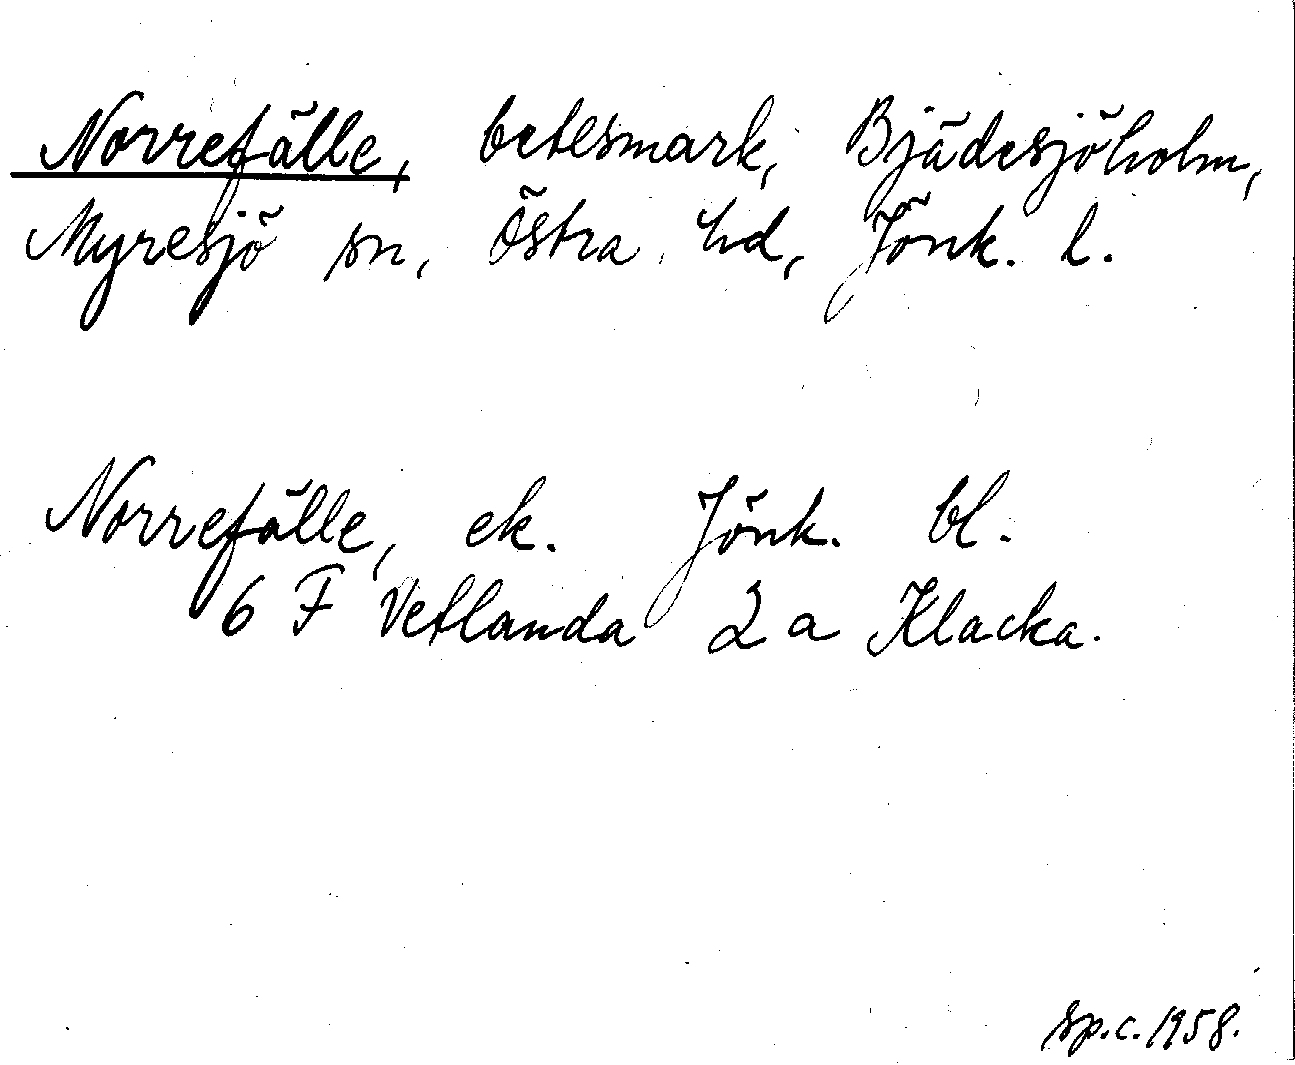 Norrefälle, betesmark, Bjädesjöholm,
Myresjö sn, Östra hd, Jönk. l.
Norrefälle, ek. Jönk. bl.
6 F Vetlanda 2 a Klacka.
Sp.c. 1958.